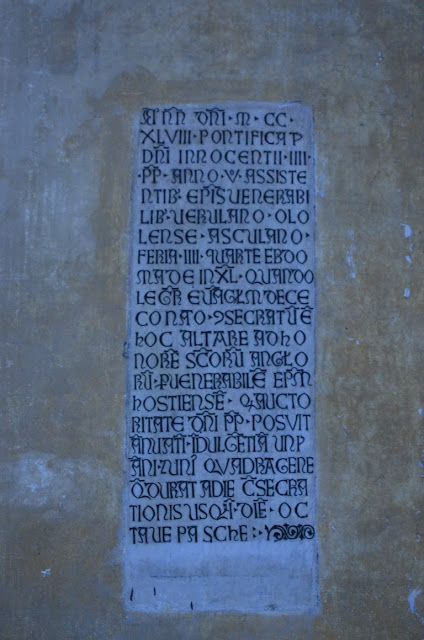 ANN DNI · M · CC ·
XLVIII · PONTIFICAT
DNI INNOCENTII · IIII ·
· PP · ANNO · V · ASSISTE
NTIB · EPIS UENERABI
LIB · UERULANO · OLO
LENSE · ASCULANO ·
FERIA · IIII · QUARTE EBDO
MADE IN XL · QUANDO
LEGR EUAGLM DE CE
CO NATO · 9SECRATU E
HOC ALTARE AD HO
NORE SCORU ANGLO
RU · P UENERABILE EPM
HOSTIENSE · Q AUCTO
RITATE DNI PP · POSUIT
ANUATI IDULGETIA UN
ANI · 7 UNI QUADRAGENE
Q DURAT A DIE CSECRA
TIONIS USQ AD DIE · OC
TAUE PASCHE :·